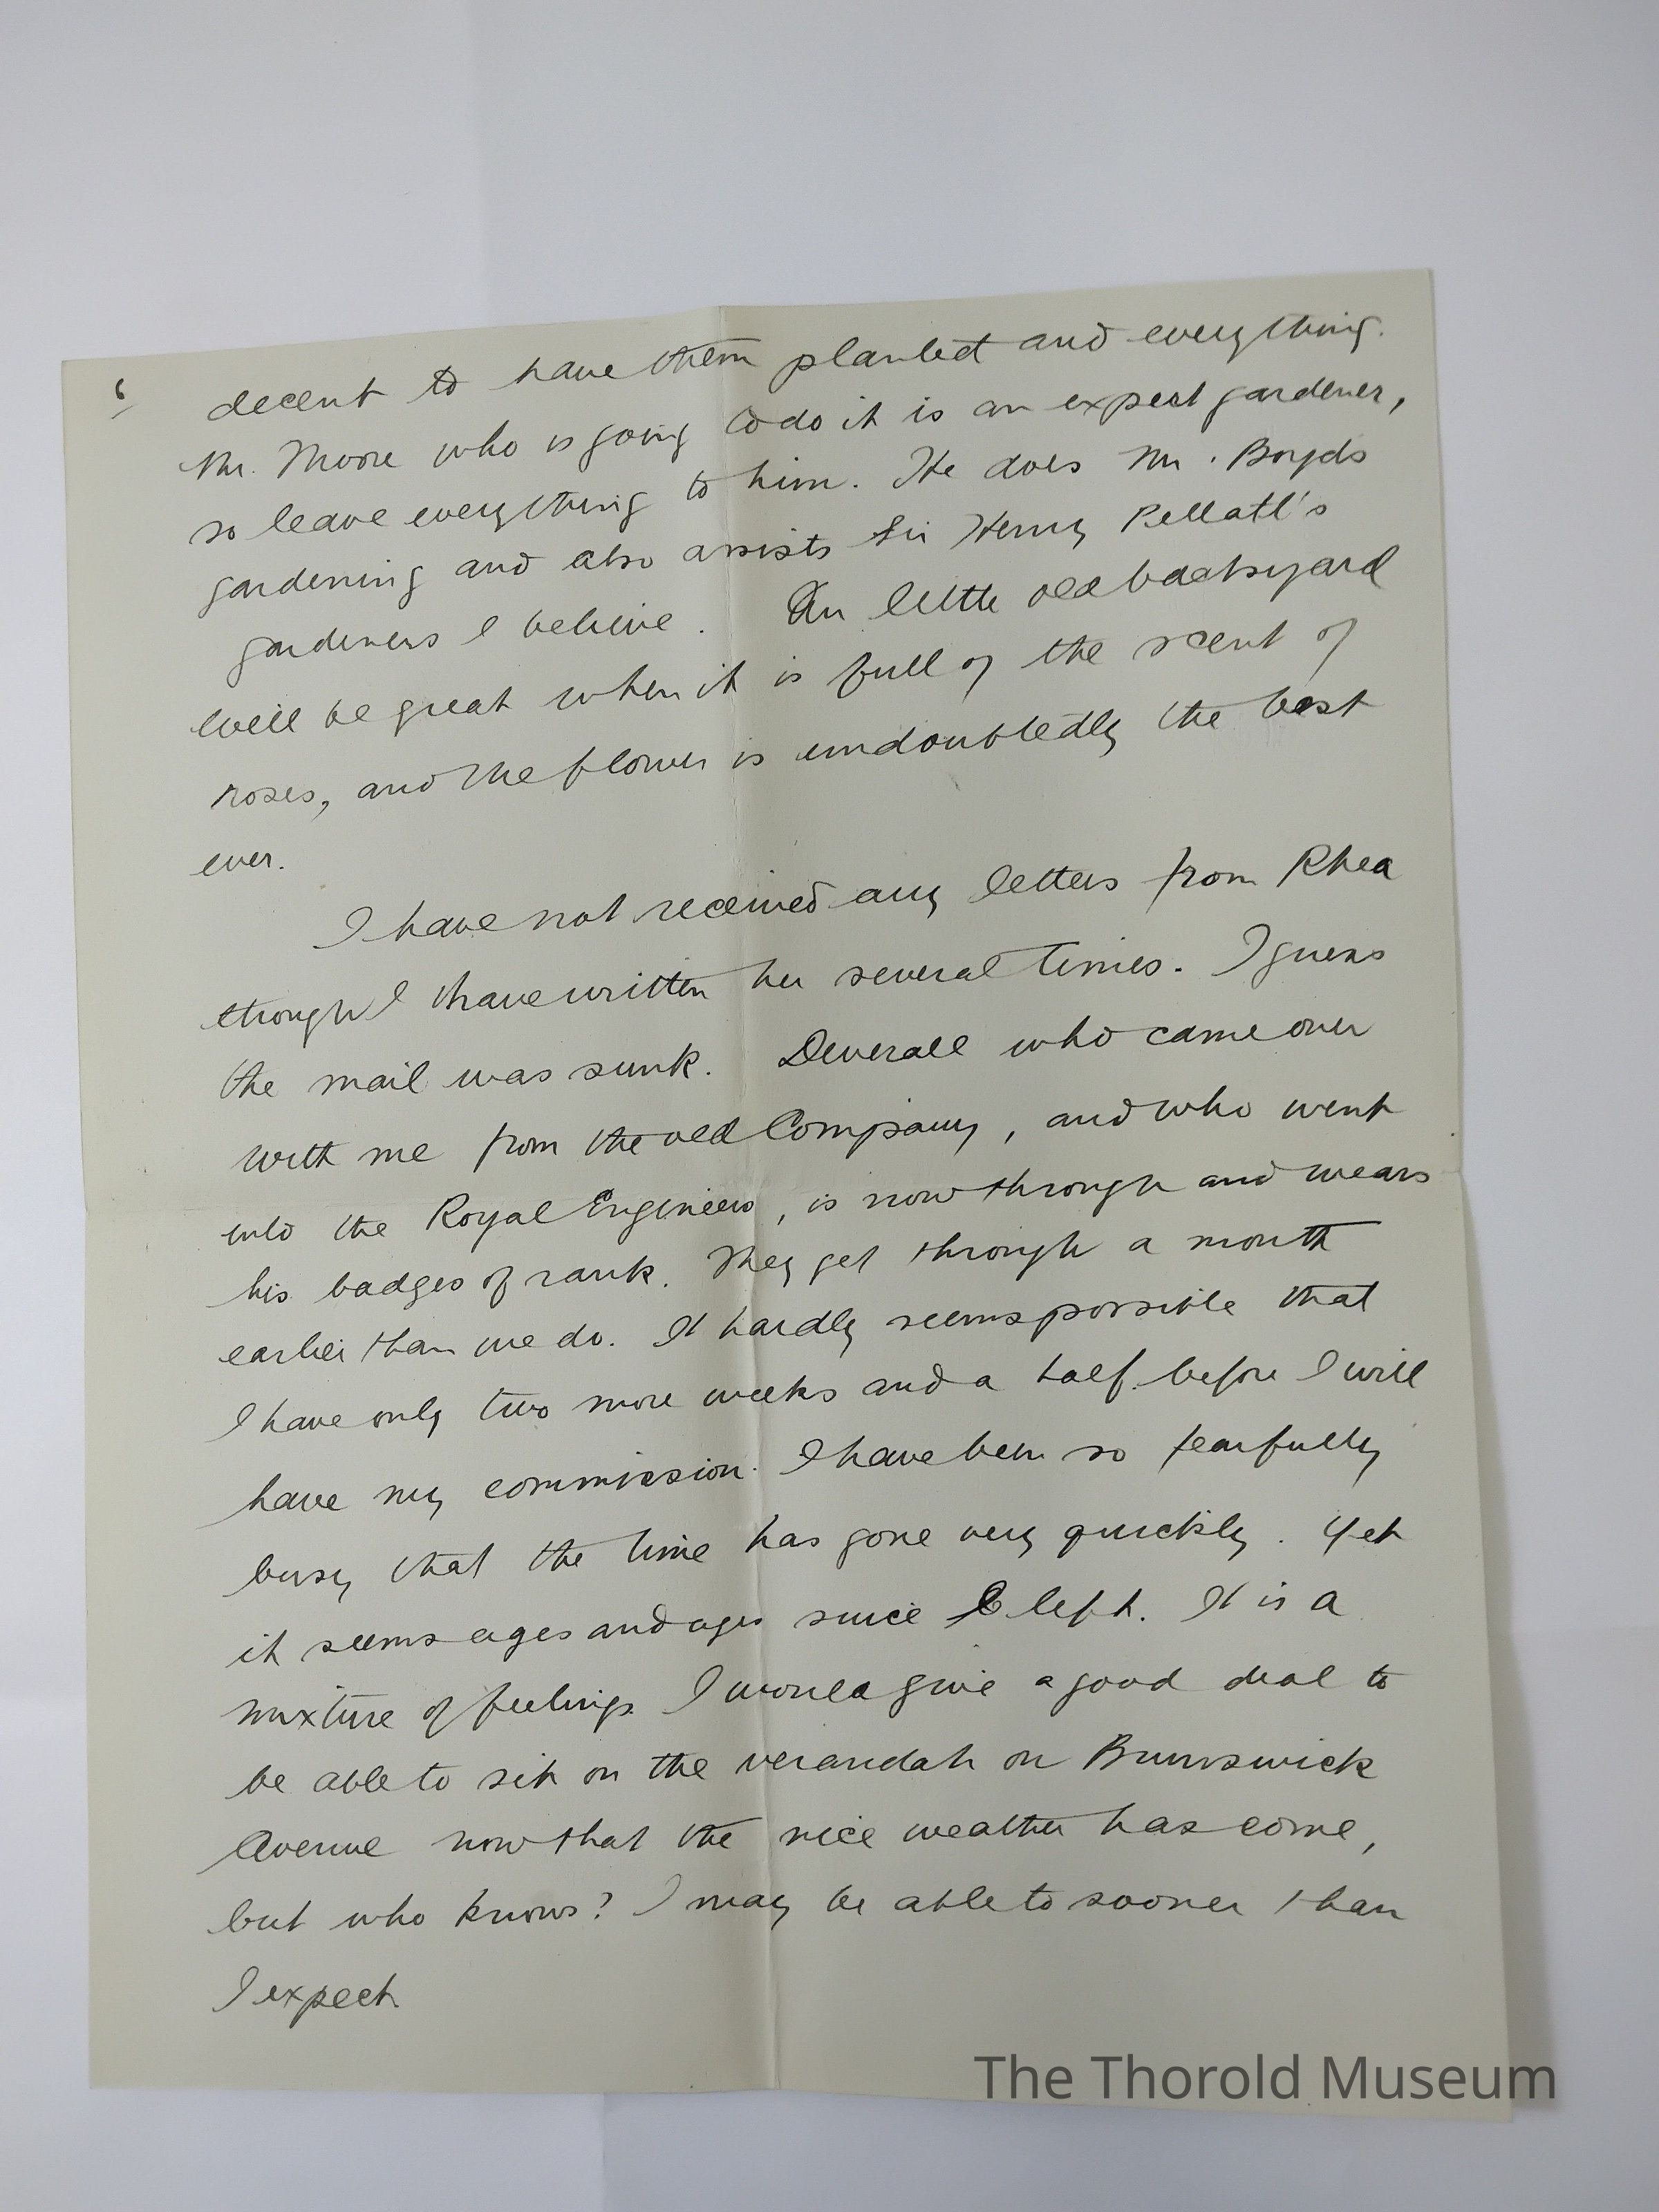 6
decent to have them planted and everything.
Mr. Moore who is going to do it is an expert gardener,
so leave everything to him. He does Mr. Boyds
gardening and also assists Sir Henry Pellatt's
gardeners I believe. Our little old backyard
will be great when it is full of the scent of
roses, and the flower is undoubtedly the best
ever.
I have not received any letters from Rhea
though I have written her several times. I guess
the mail was sunk. Deverall who came over
with me from the old Company, and who went
into the Royal Engineers, is now through and wears
his badges of rank. They get through a month
earlier than we do. It hardly seems possible that
I have only two more weeks and a half before I will
have my commission. I have been so fearfully
busy that the time has gone very quickly. Yet
it seems ages and ages since I left. It is a
mixture of feelings. I would give a good deal to
be able to sit on the verandah on Brunswick
Avenue now that the nice weather has come,
but who knows? I may be able to sooner than
I expect
The Thorold Museum